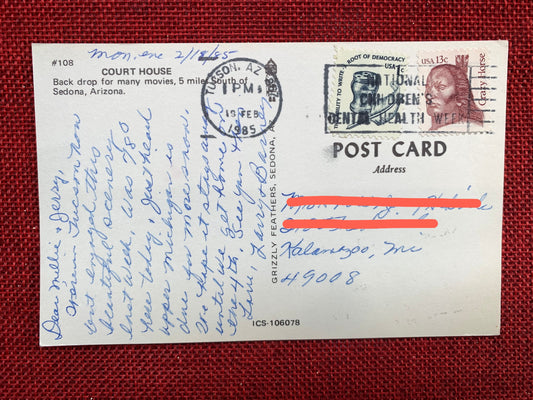 Mon, eve 2/18/85
#108
COURT HOUSE
Back drop for many movies, 5 miles South of
Sedona, Arizona.
Dear Millie & Jerry,
We're in Tucson now
but enjoyed this
beautiful scenery
last week, was 78°
here today, Just heard
upper Michigan is
due for more snow.
We hope it stays up
until we get home on
the 4th, See you then
Love, Larry & Barb
GRIZZLY FEATHERS, SEDONA, A
ICS-106078
TUCSON, AZ
1 PM
19 FEB
1985
ABILITY TO WRITE A ROOT OF DEMOCRACY
USA
USA 13c
Crazy Horse
NATIONAL
CHILDREN'S
DENTAL HEALTH WEEK
POST CARD
Address
Kalamazoo, Mi
49008